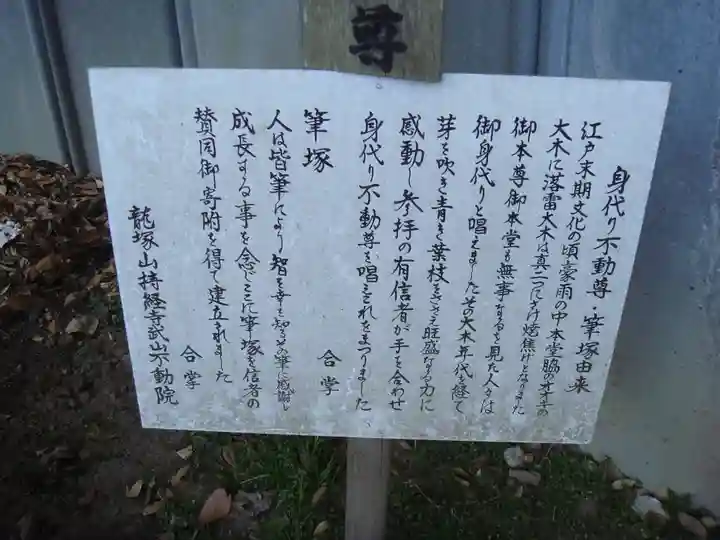 尊
身代り不動尊・筆塚由来
江戸末期文化の頃豪雨の中本堂脇の
大木に落雷大木は真二つにさけ焼焦げとなりました
御本尊御本堂も無事なるを見た人々は
御身代りと唱えましたその大木年代を経て
芽を吹き青き葉枝をさゝえ旺盛なる力に
感動し参拝の有信者が手を合わせ
身代り不動尊と唱えされたまつりました
合掌
筆塚
人は皆筆により智を幸を知るその筆に感謝し
成長する事を念じここに筆塚を信者の
賛同御寄附を得て建立されました
合掌
龍塚山持経寺武山不動院